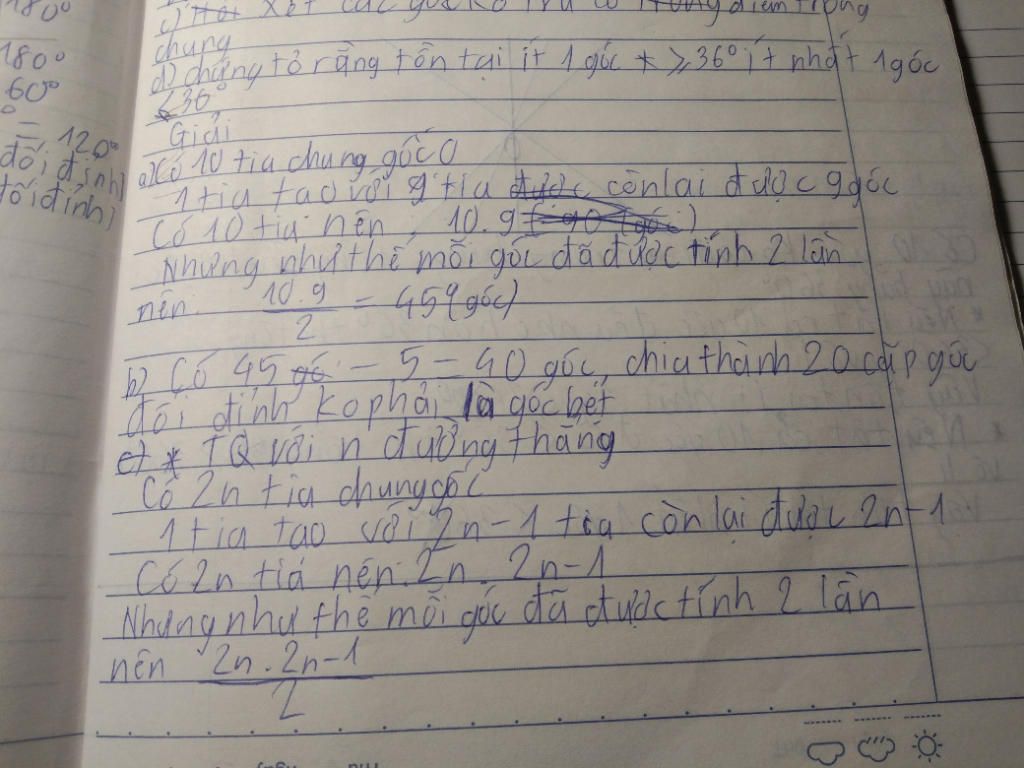 180°
c) xét các góc ko trong điểm trong
chung
180°
d) chứng tỏ rằng tồn tại ít 1 góc ≥ 36° ít nhất 1 góc
60°
≤ 36°
= 120°
Giải
đối đỉnh)
đối đỉnh)
a) Có 10 tia chung gốc O
1 tia tạo với 9 tia được còn lại được 9 góc
Có 10 tia nên 10.9 = 90 (góc)
Nhưng như thế mỗi góc đã được tính 2 lần
nên 10.9/2 = 45 (góc)
b) Có 45 gó - 5 = 40 góc, chia thành 20 cặp góc
đối đỉnh ko phải là góc bẹt
c) * TQ với n đường thẳng
Có 2n tia chung gốc
1 tia tạo với 2n-1 tia còn lại được 2n-1
Có 2n tia nên: 2n . 2n-1
Nhưng như thế mỗi góc đã được tính 2 lần
nên 2n . 2n-1 / 2